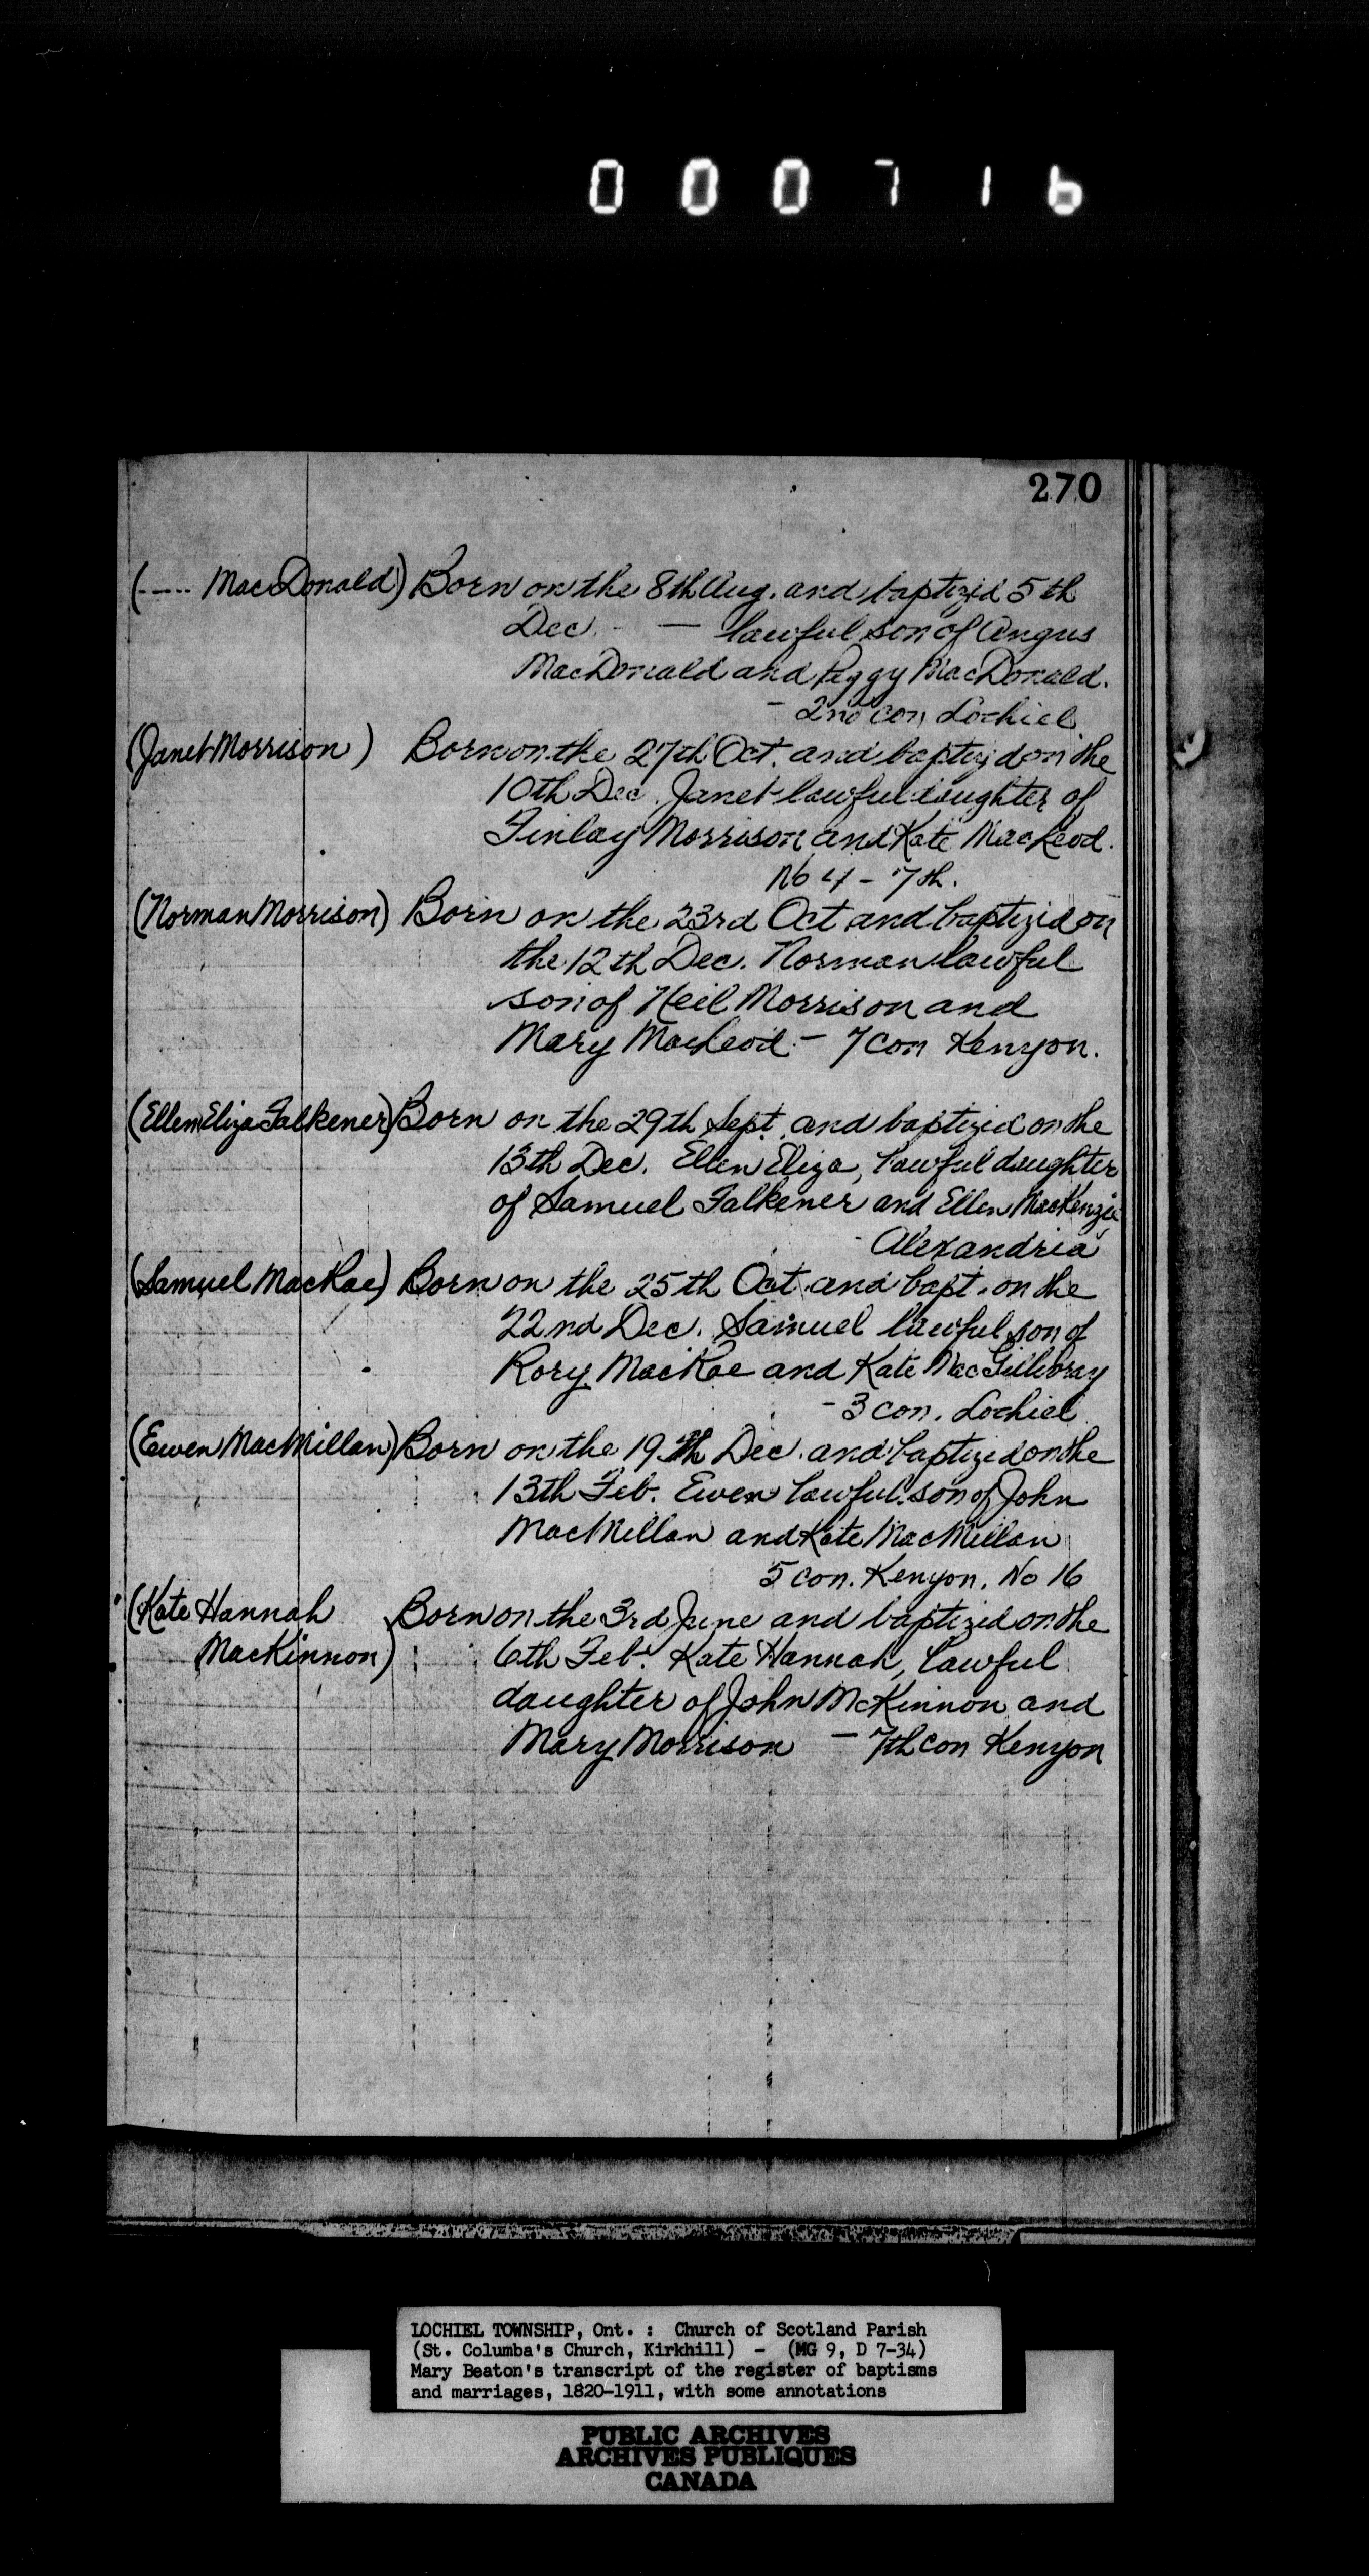 000716
270
(---- MacDonald) Born on the 8th Aug. and baptized 5th
Dec. - — lawful son of Angus
MacDonald and Peggy MacDonald.
- 2nd con Lochiel
(Janet Morrison) Born on the 27th Oct. and baptizd on the
10th Dec. Janet lawful daughter of
Finlay Morrison and Kate MacLeod.
No 4 - 7th.
(Norman Morrison) Born on the 23rd Oct and baptized on
the 12th Dec. Norman lawful
son of Neil Morrison and
Mary MacLeod - 7 con Kenyon.
(Ellen Eliza Falkener) Born on the 29th Sept. and baptized on the
13th Dec. Ellen Eliza, lawful daughter
of Samuel Falkener and Ellen MacKenzie
- Alexandria
(Samuel MacRae) Born on the 25th Oct and bapt. on the
22nd Dec. Samuel lawful son of
Rory MacRae and Kate MacGillivray
- 3 con. Lochiel
(Ewen MacMillan) Born on the 19th Dec. and baptized on the
13th Feb. Ewen lawful son of John
MacMillan and Kate MacMillan
5 con. Kenyon. No 16
(Kate Hannah Born on the 3rd June and baptized on the
MacKinnon) 6th Feb. Kate Hannah, lawful
daughter of John McKinnon and
Mary Morrison - 7th con Kenyon
LOCHIEL TOWNSHIP, Ont. : Church of Scotland Parish
(St. Columba's Church, Kirkhill) - (MG 9, D 7-34)
Mary Beaton's transcript of the register of baptisms
and marriages, 1820-1911, with some annotations
PUBLIC ARCHIVES
ARCHIVES PUBLIQUES
CANADA